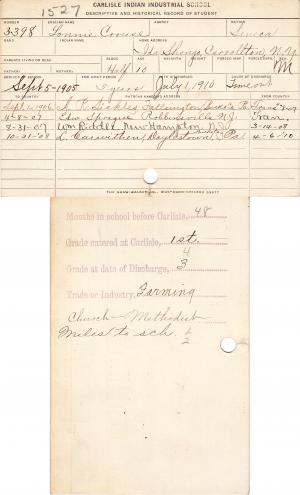 CARLISLE INDIAN INDUSTRIAL SCHOOL
1527 DESCRIPTIVE AND HISTORICAL RECORD OF STUDENT
NUMBER ENGLISH NAME AGENCY NATION
3398 Lonnie Crouse Seneca
BAND INDIAN NAME HOME ADDRESS
Ida Shongo, Carrollton, N.Y.
PARENTS LIVING OR DEAD BLOOD AGE HEIGHT WEIGHT SEX
Half 10 M
Sept 5-1905 5 years July 1, 1910 Time out
TO COUNTRY PATRONS NAME AND ADDRESS FROM COUNTRY
Sept. 1, 1906 Sickles Fallsington, Bucks
11-8-07 Edw Sprague Robbinsville N.J. Tran.
8-31-07 Wm Riddle, New Hampton, N.J. 3-14-08
10-21-08 L. Doylestown, Pa 4-6-10
Months in school before Carlisle, 48
Grade entered at Carlisle, 1st.
4
Grade at date of Discharge, 3
Trade or Industry, Farming
Church - Methodist
Miles to sch. 1/2